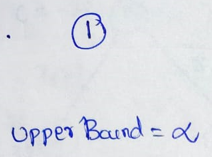 ①
Upper Bound = α